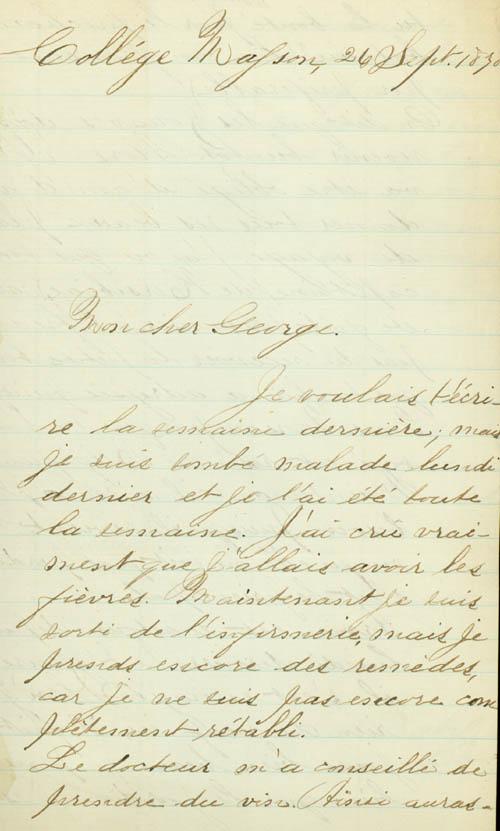 Collége Masson, 26 Sept. 1890
Mon cher George.
Je voulais t'écri-
re la semaine dernière; mais
je suis tombé malade lundi
dernier et je l'ai été toute
la semaine. J'ai cru vrai-
ment que j'allais avoir les
fièvres. Maintenant je suis
sorti de l'infirmerie, mais je
prends encore des remèdes,
car je ne suis pas encore com
plètement rétabli.
Le docteur m'a conseillé de
prendre du vin. Ainsi auras-